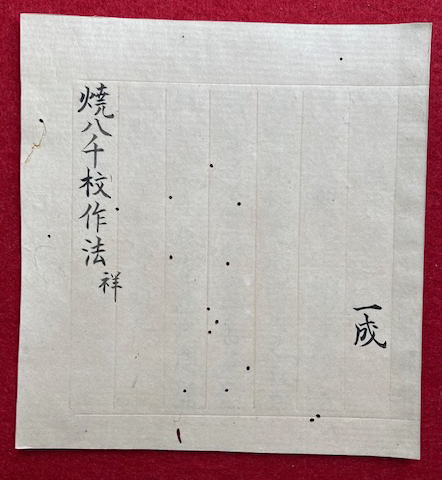 焼八千枚作法 祥
一成